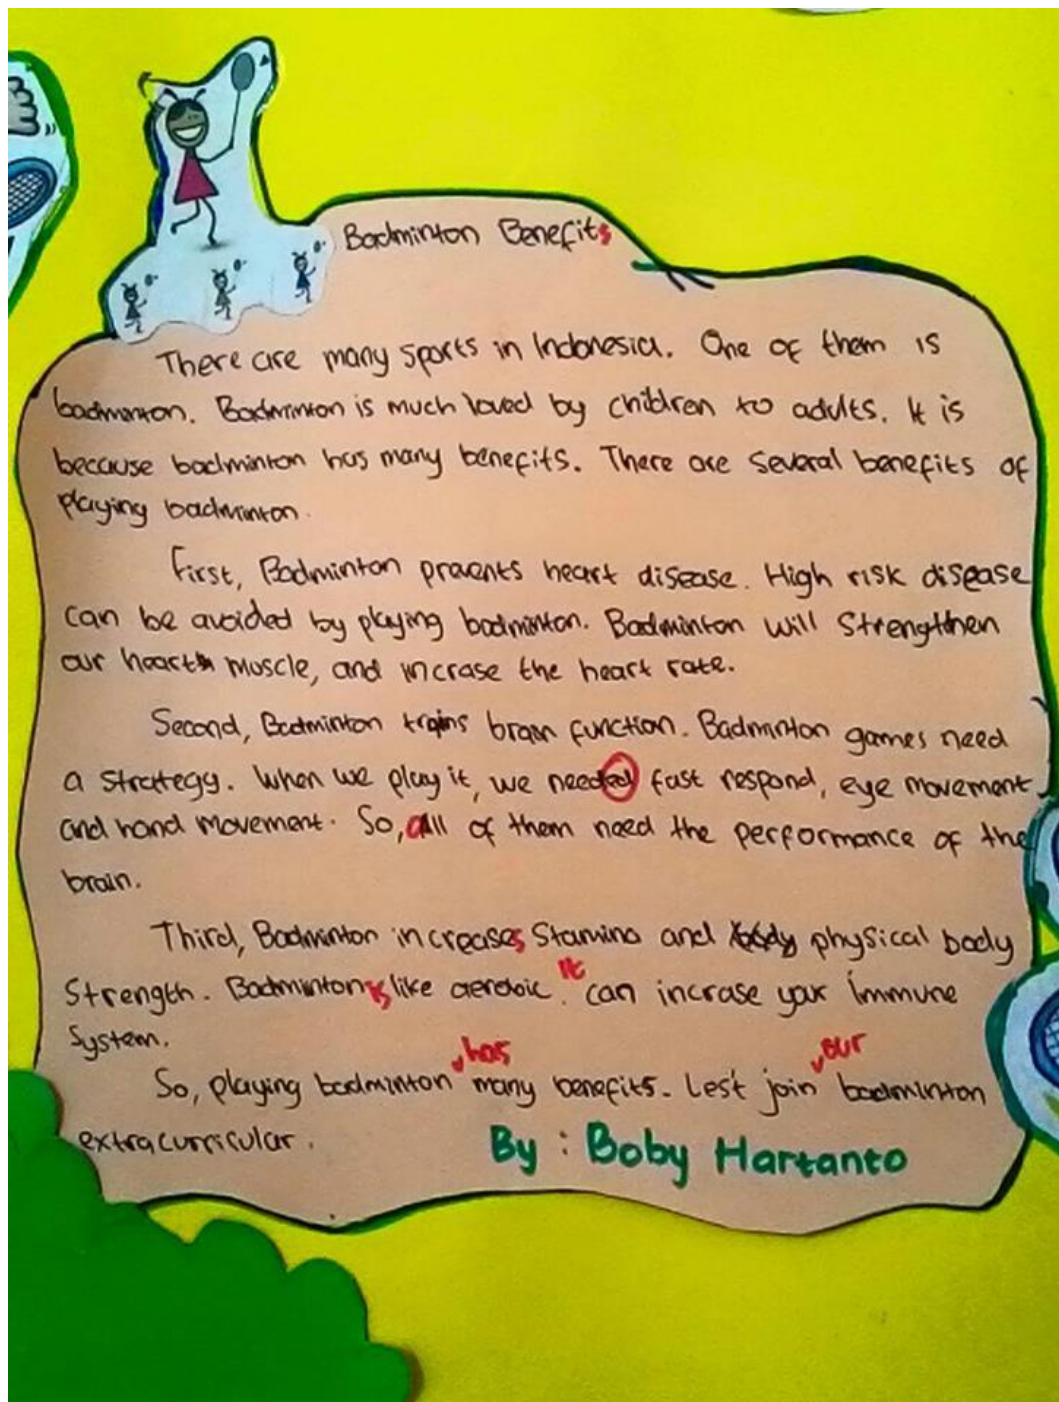 Badminton Benefits
There are many sports in Indonesia. One of them is
badminton. Badminton is much loved by children to adults. It is
because badminton has many benefits. There are several benefits of
playing badminton.
First, Badminton prevents heart disease. High risk disease
can be avoided by playing badminton. Badminton will strengthen
our heart muscle, and incrase the heart rate.
Second, Badminton trains brain function. Badminton games need
a strategy. When we play it, we needed fast respond, eye movement
and hand movement. So, all of them need the performance of the
brain.
Third, Badminton increases stamina and body physical body
strength. Badminton is like aerobic. It can incrase your immune
system.
So, playing badminton has many benefits. Les't join our badminton
extracurricular.
By : Boby Hartanto